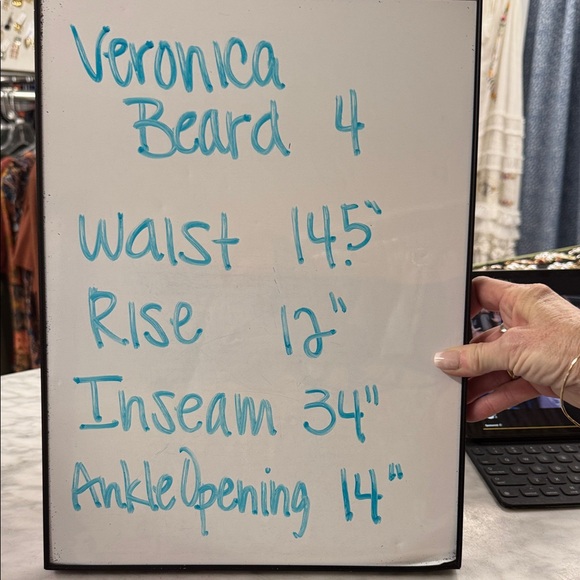 Veronica
Beard 4
Waist 14.5"
Rise 12"
Inseam 34"
Ankle Opening 14"